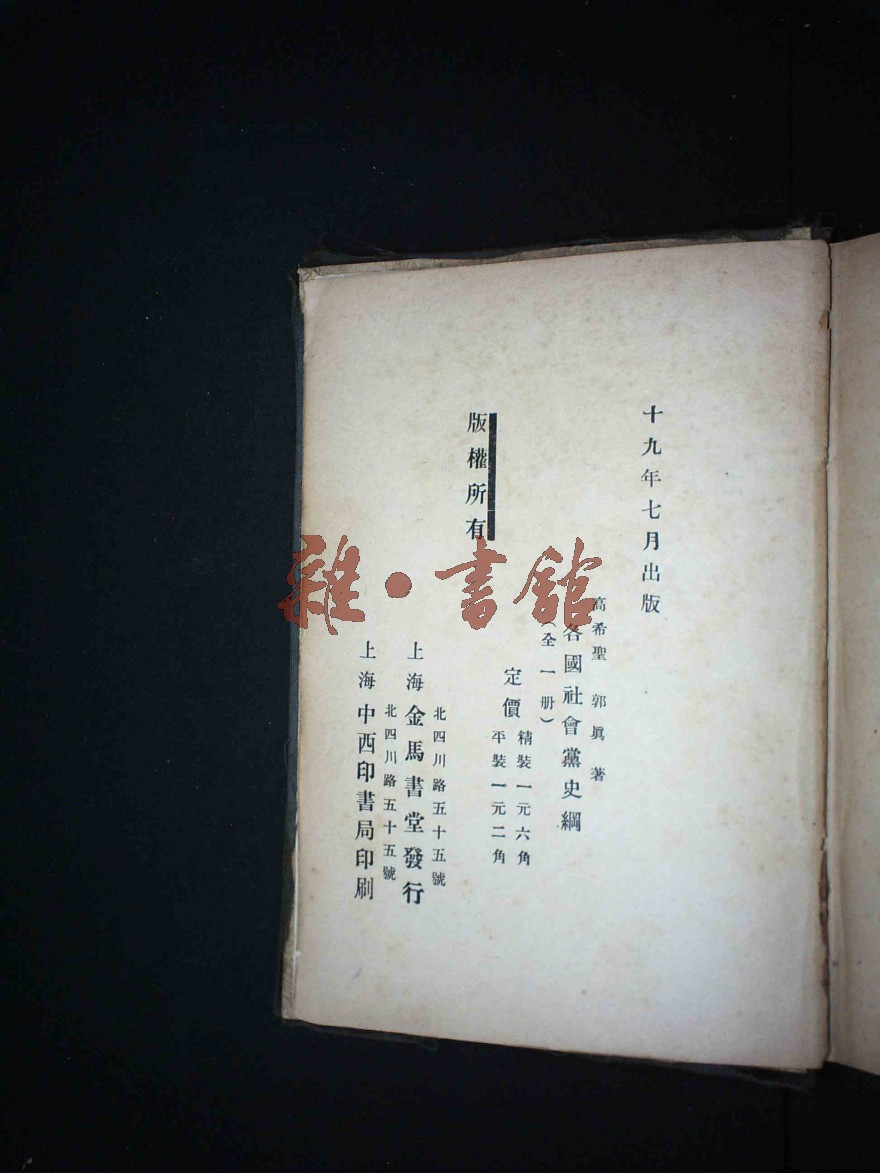 十九年七月出版
高希聖 郭眞 著
各國社會黨史綱
(全一册)
定價
精裝一元六角
平裝一元二角
版權所有
北四川路五十五號
上海金馬書堂發行
北四川路五十五號
上海中西印書局印刷
雜·書館